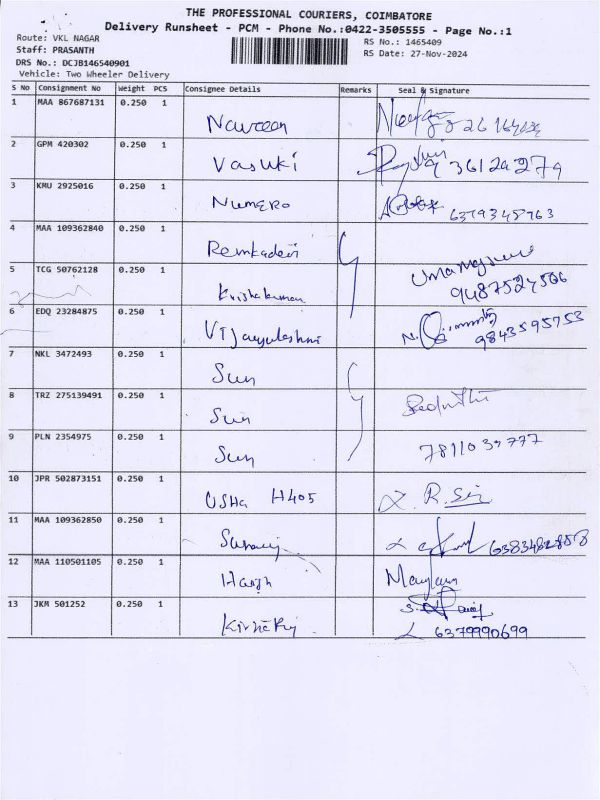 THE PROFESSIONAL COURIERS, COIMBATORE
Delivery Runsheet - PCM - Phone No.:0422-3505555 - Page No.:1
Route: VKL NAGAR
RS No.: 1465409
Staff: PRASANTH
RS Date: 27-Nov-2024
DRS No.: DCJB146540901
Vehicle: Two Wheeler Delivery
S No Consignment No Weight PCS Consignee Details Remarks Seal & Signature
1 MAA 867687131 0.250 1 Naveen
2 GPM 420302 0.250 1 Vasuki
3 KMU 2925016 0.250 1 Numero 6379345763
4 MAA 109362840 0.250 1
5 TCG 50762128 0.250 1 9487524506
6 EDQ 23284875 0.250 1 9843595753
7 NKL 3472493 0.250 1 Sun
8 TRZ 275139491 0.250 1 Sun
9 PLN 2354975 0.250 1 Sun 7811039777
10 JPR 502873151 0.250 1 Usha H405
11 MAA 109362850 0.250 1
12 MAA 110501105 0.250 1
13 JKM 501252 0.250 1 6379990699